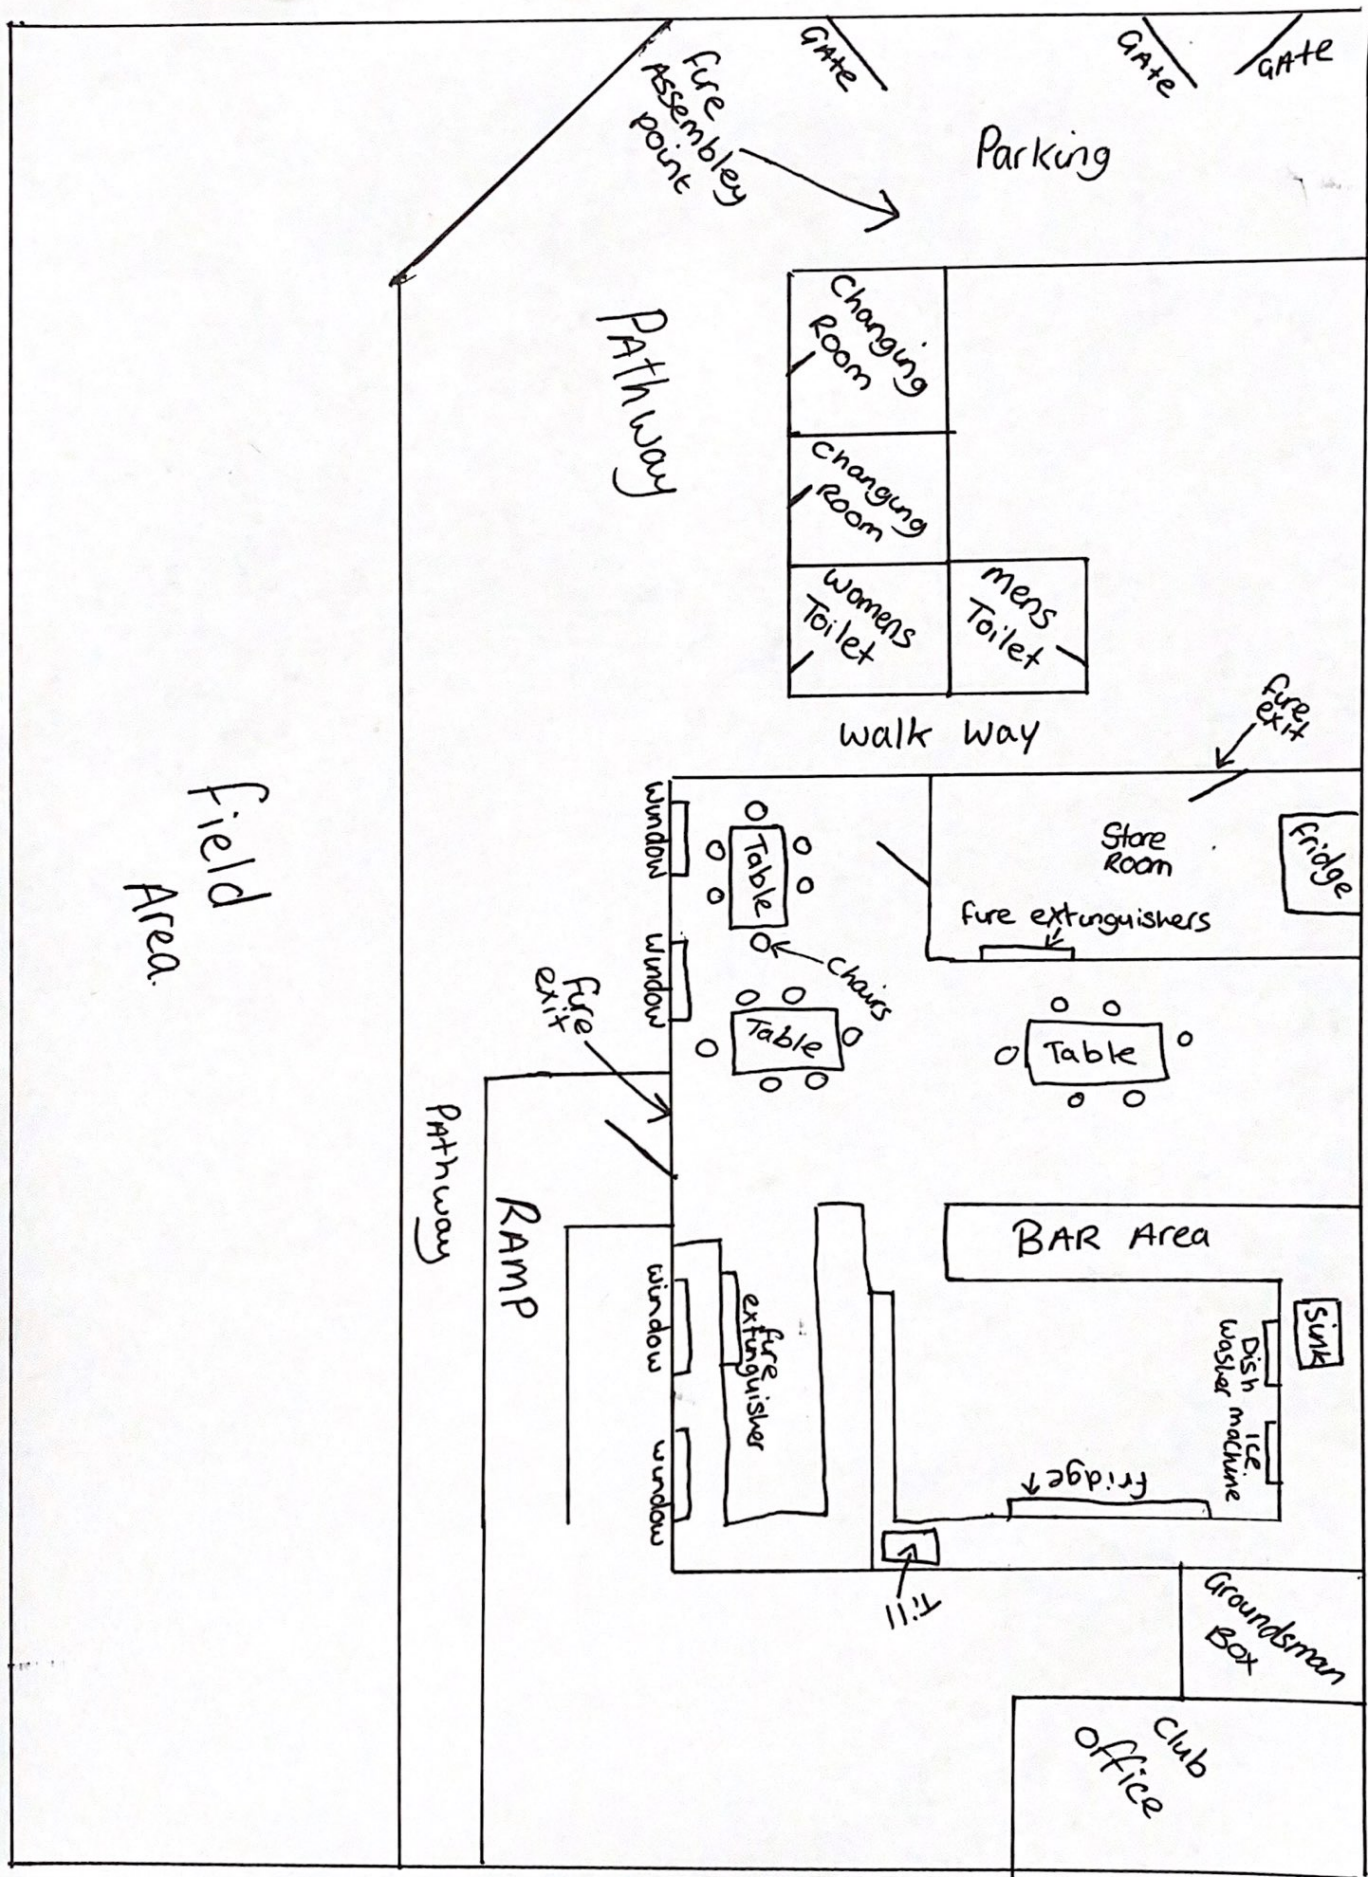 GATE
GATE
GATE
Fire
Assembley
point
Parking
Changing
Room
PAthway
Changing
Room
Womens
Toilet
Mens
Toilet
Walk Way
fire
exit
Window
Table
Store
Room
Fridge
fire extinguishers
Window
chairs
fire
exit
Table
Table
Field
Area
PAthway
RAMP
BAR Area
Window
fire
extinguisher
Sink
Dish
Washer
ice
machine
Fridge
Window
till
Groundsman
Box
Club
Office